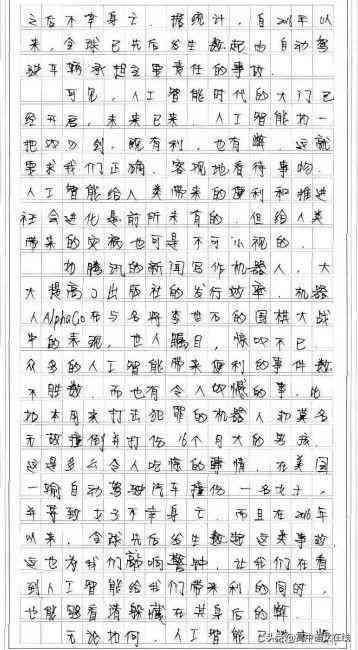 之后不幸身亡。据统计,自2016年以
来,全球已先后发生数起由自动驾
驶车辆承担主要责任的事故。
可见,人工智能时代的大门已
经开启,未来已来,人工智能如一
把 ,既有利,也有弊,这就
要求我们正确、客观地看待事物。
人工智能给人类带来的便利和推进
社会进化是前所未有的,但给人类
带来的灾祸也可是不可小视的。
如腾讯的新闻写作机器人,大
大提高了出版社的发行效率,机器
人AlphaGo在与名将李世石的围棋大战
中的表现,世人瞩目,惊叹不已
众多的人工智能带来便利的事件数
不胜数,而也有令人 的事,比
如本用来打击犯罪的机器人却莫名
无故撞倒并打伤16个月大的男孩,
这是多么令人吃惊的事情,在美国
一辆自动驾驶汽车撞伤一名女子,
并导致女子不幸身亡,而且在2016年
以来,全球先后发生数起这类事故,
这也为我们敲响警钟,让我们在看
到人工智能给我们带来利的同时,
也能够看清躲藏在其身后的弊。
无论如何,人工智能已
头条@高中语文在线